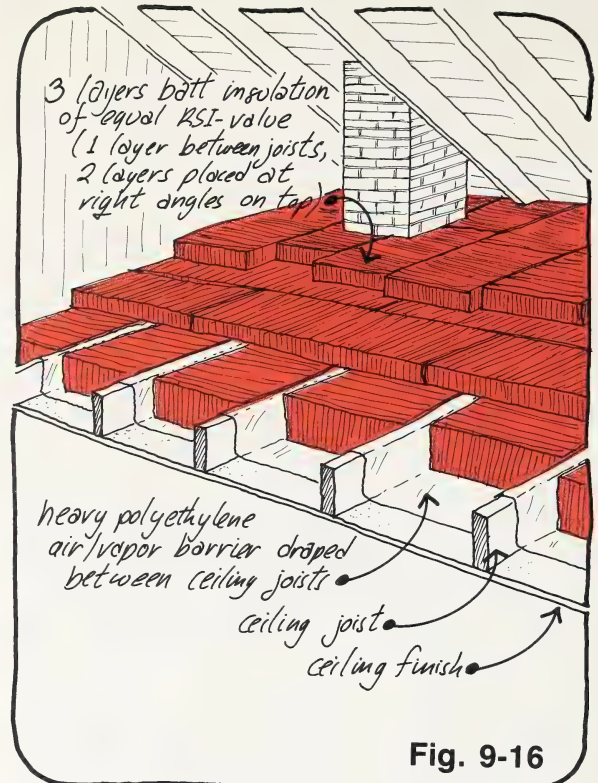 3 layers batt insulation
of equal RSI-value
(1 layer between joists,
2 layers placed at
right angles on top)
heavy polyethylene
air/vapor barrier draped
between ceiling joists
ceiling joist
ceiling finish
Fig. 9-16